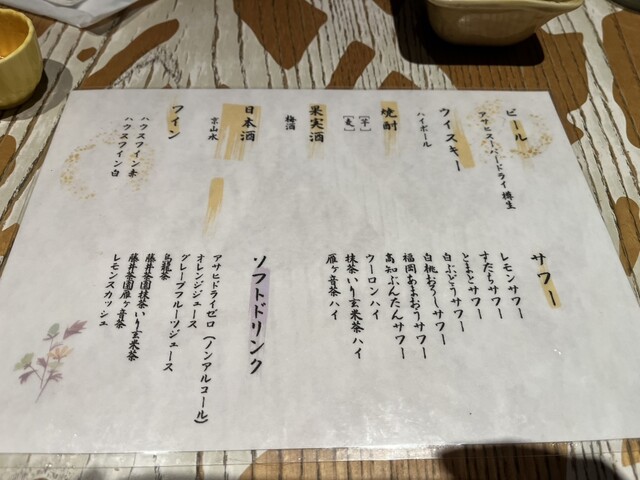 ビール
アサヒスーパードライ 樽生
ウイスキー
ハイボール
焼酎
[芋]
[麦]
果実酒
梅酒
日本酒
京山水
ワイン
ハウスワイン 赤
ハウスワイン 白
サワー
レモンサワー
すだちサワー
とまとサワー
白ぶどうサワー
白桃おろしサワー
福岡あまおうサワー
高知ぶんたんサワー
ウーロンハイ
抹茶いり玄米茶ハイ
雁ヶ音茶ハイ
ソフトドリンク
アサヒドライゼロ（ノンアルコール）
オレンジジュース
グレープフルーツジュース
烏龍茶
藤井茶園抹茶いり玄米茶
藤井茶園雁ヶ音茶
レモンスカッシュ